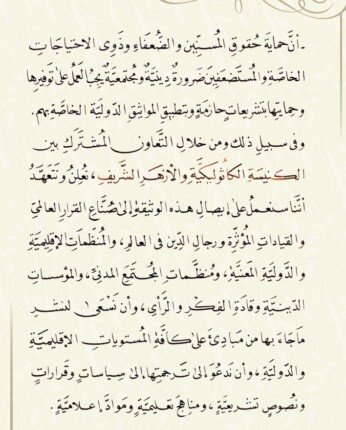 ـ أنَّ حمايةَ حُقوقِ المُسنِّين والضُّعفاءِ وذَوِي الاحتياجاتِ
الخاصَّةِ والمُستضعَفِينَ ضرورةٌ دينيَّةٌ ومُجتمعيَّةٌ يجبُ العملُ على توفيرِها
وحمايتِها بتشريعاتٍ حازمةٍ وبتطبيقِ المواثيقِ الدَّوليَّةِ الخاصَّةِ بهم.
وفي سبيلِ ذلك ومن خلالِ التَّعاونِ المُشتركِ بين
الكنيسةِ الكاثوليكيَّةِ والأزهرِ الشَّريفِ، نُعلِنُ ونَتَعهَّدُ
أنَّنا سنعملُ على إيصالِ هذه الوثيقةِ إلى صُنَّاعِ القرارِ العالميِّ
والقياداتِ المُؤثِّرةِ ورجالِ الدِّين في العالمِ، والمُنظَّماتِ الإقليميَّةِ
والدَّوليَّةِ المَعنيَّةِ، ومُنظَّماتِ المُجتمَعِ المدنيِّ، والمؤسساتِ
الدينيَّةِ وقادَةِ الفِكْرِ والرَّأيِ، وأن نَسْعَى لنشرِ
ما جاءَ بها من مبادئَ على كافَّةِ المُستوياتِ الإقليميَّةِ
والدَّوليَّةِ، وأن نَدعُوَ إلى تَرجمتِها إلى سِياساتٍ وقَراراتٍ
ونُصوصٍ تشريعيَّةٍ، ومناهجَ تعليميَّةٍ وموادَّ إعلاميَّةٍ.